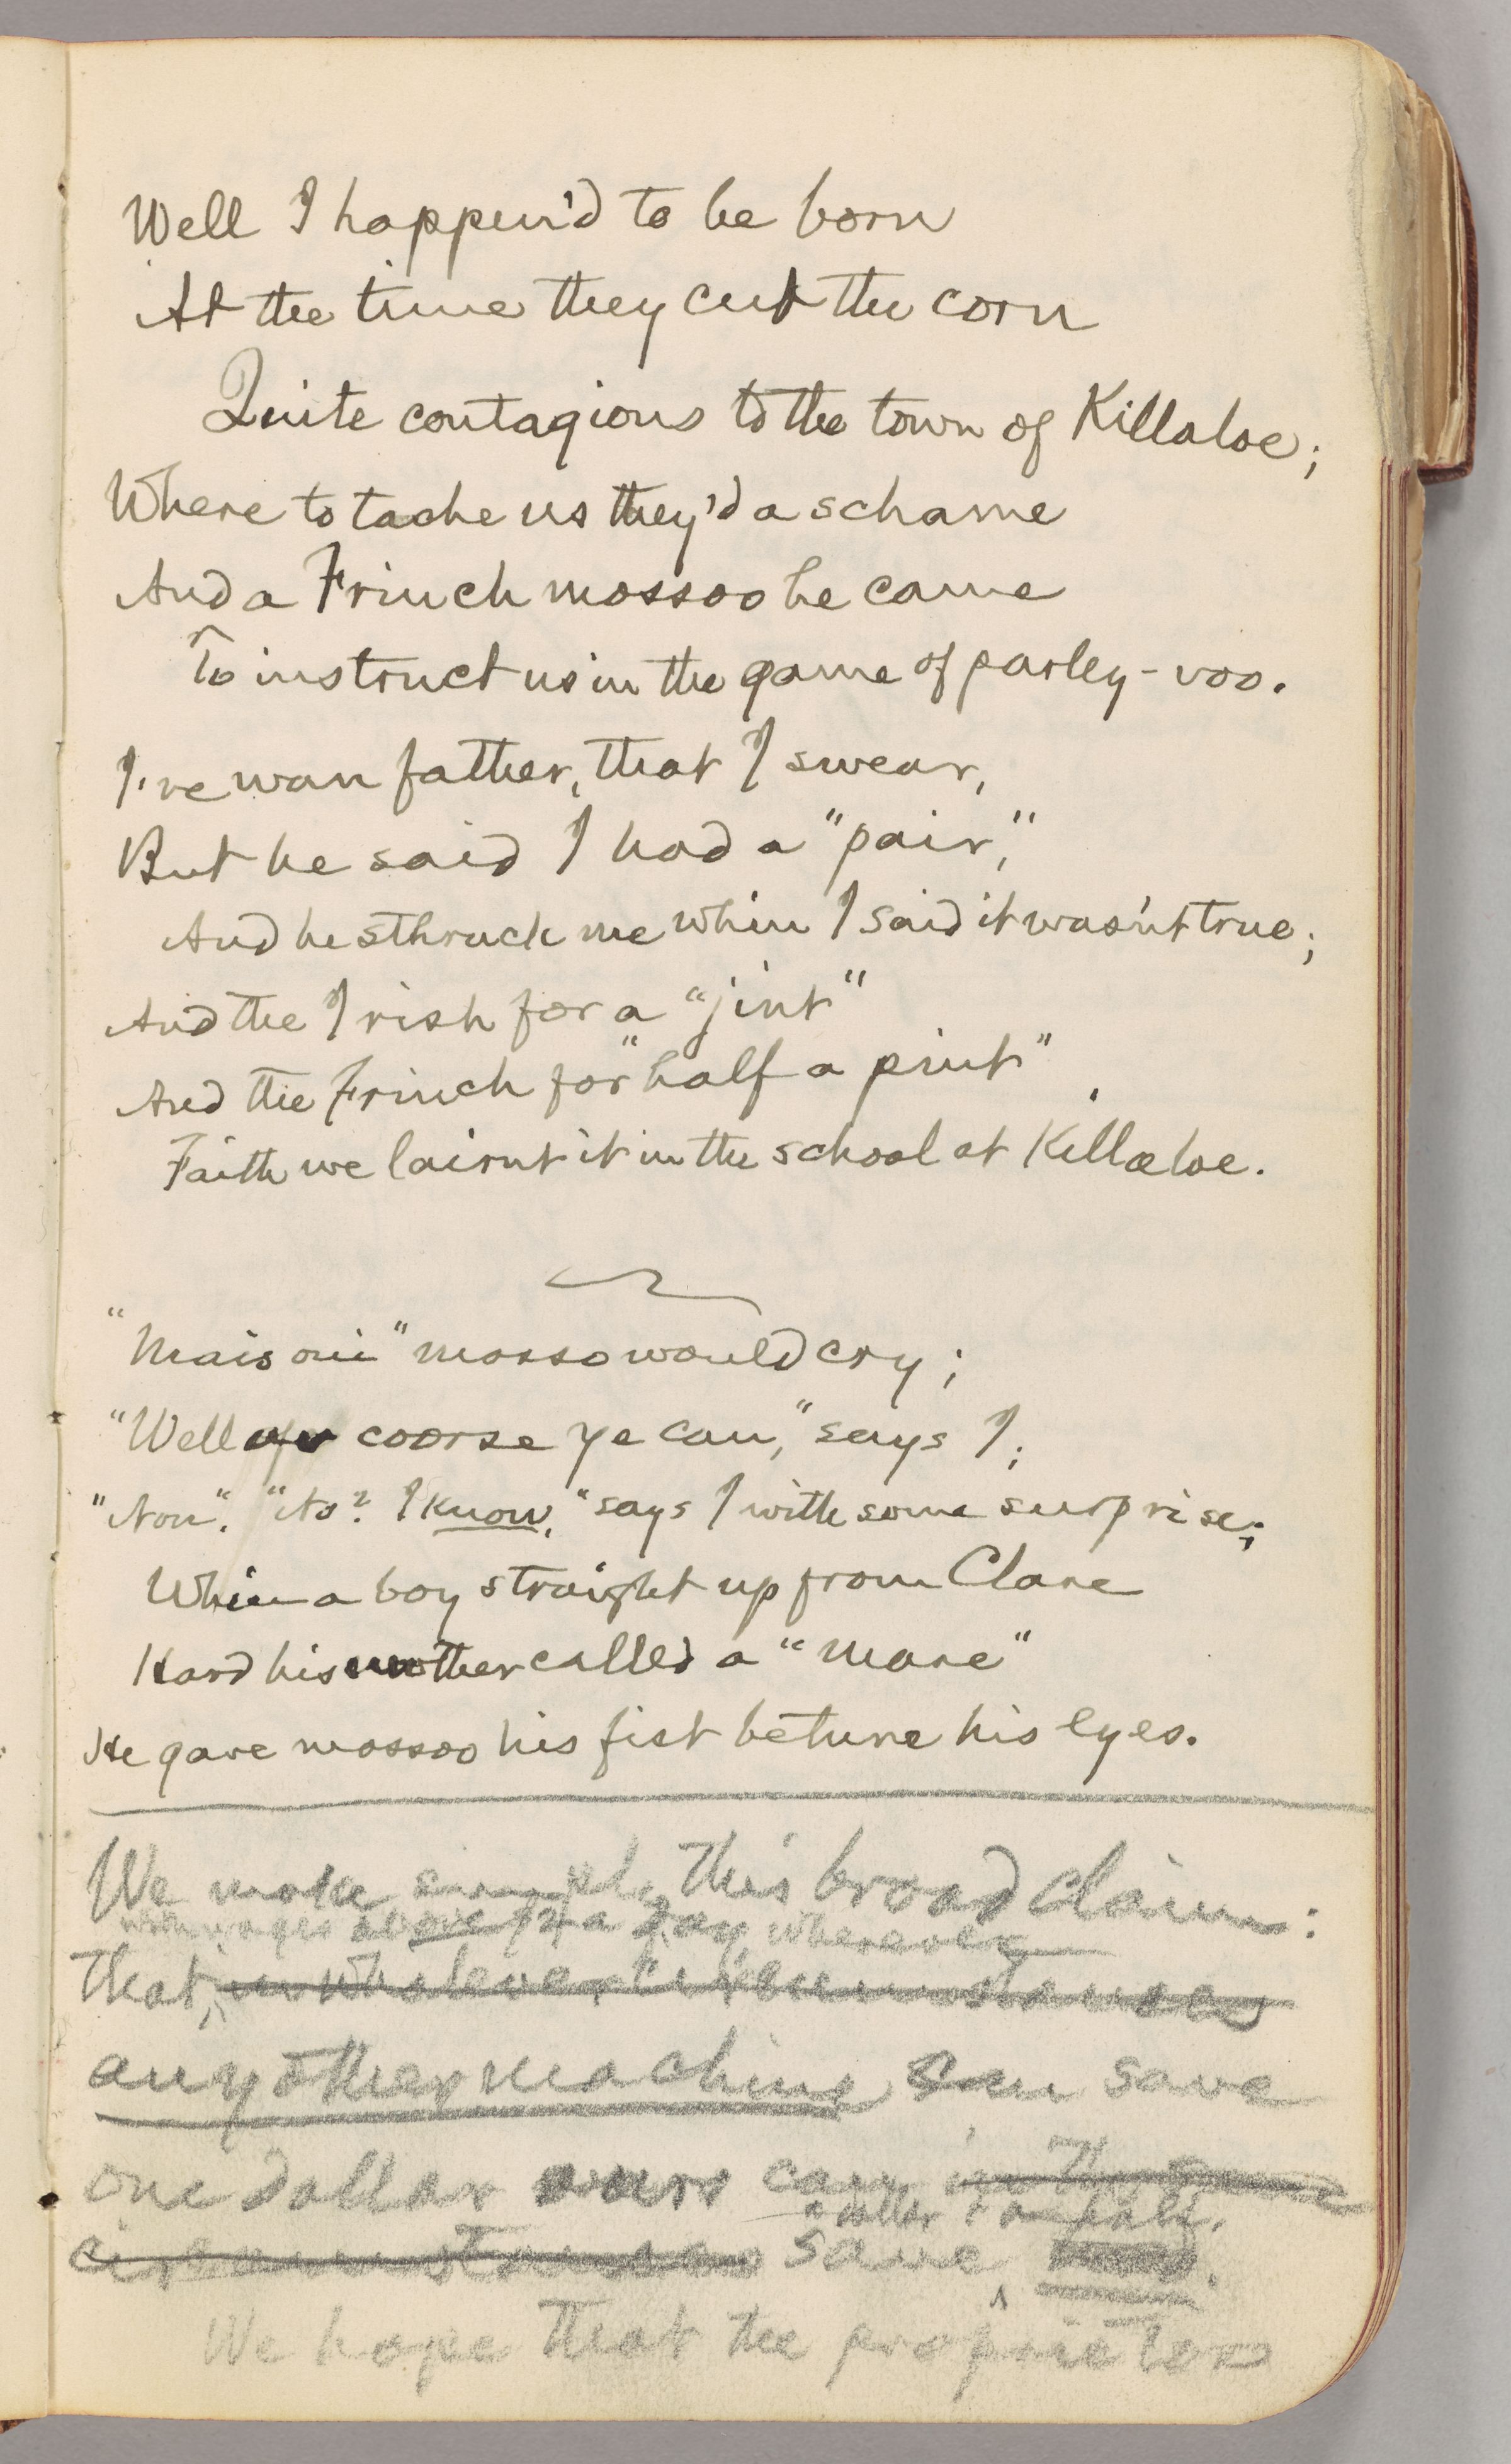 Well I happen'd to be born
At the time they cut the corn
Quite contagious to the town of Killaloe;
Where to tache us they'd a schame
And a Frinch mossoo he came
To instruct us in the game of parley-voo.
I've wan father, that I swear,
But he said I had a "pair,"
And he sthruck me whin I said it wasn't true;
And the Irish for a "jint"
And the Frinch for "half a pint"
Faith we lairnt it in the school at Killaloe.
"Mais oui" mosso would cry;
"Well of coorse ye can," says I;
"Non". "No? I know," says I with some surprise;
Whin a boy straight up from Clare
Hard his mother called a "mare"
He gave mossoo his fist betune his eyes.
We make simply this broad claim:
wages above $4 a day, wherever
that, in whatever circumstances
any other machine can save
one dollar ours can in the same
a dollar & a half.
circumstances save
We hope that the proprietors